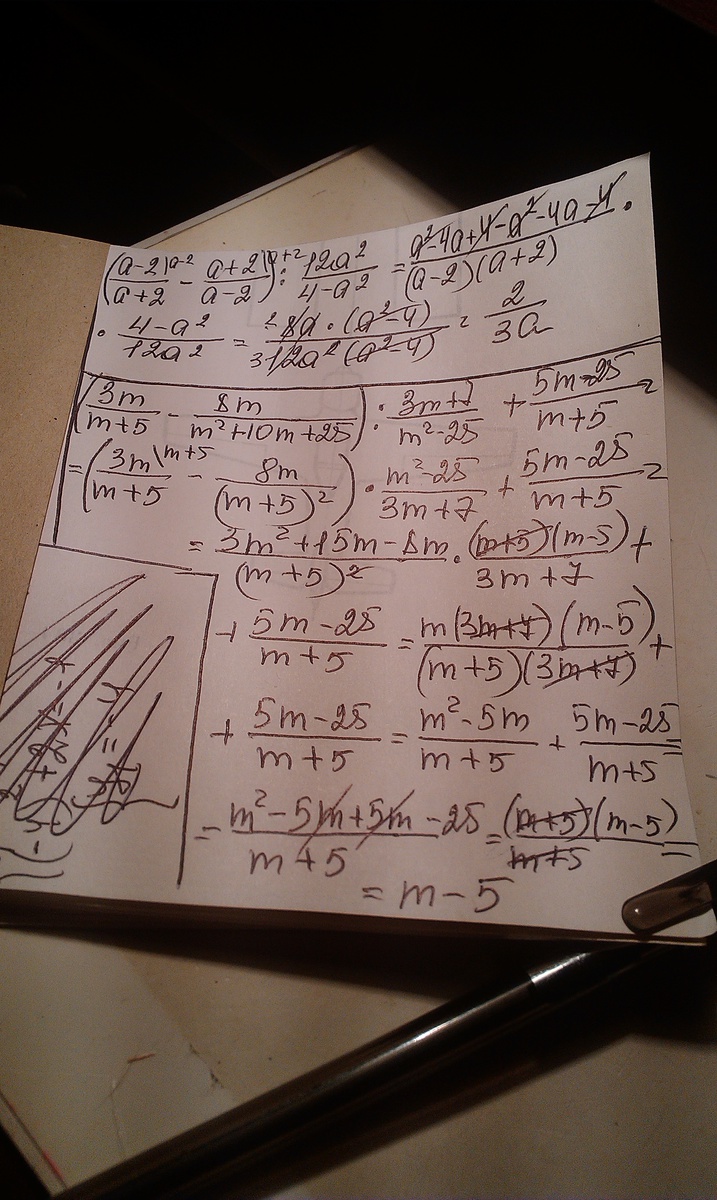 ((a-2)\a-2/(a+2) - (a+2)\a+2/(a-2)) : 12a²/(4-a²) = (a²-4a+4-a²-4a-4)/((a-2)(a+2)) ·
· (4-a²)/(12a²) = (8a·(a²-4))/(12a²(a²-4)) = 2/(3a)
(3m/(m+5) - 8m/(m²+10m+25)) : (3m+7)/(m²-25) + (5m-25)/(m+5) =
= (3m\m+5/(m+5) - 8m/(m+5)²) · (m²-25)/(3m+7) + (5m-25)/(m+5) =
= (3m²+15m-8m)/(m+5)² · ((m+5)(m-5))/(3m+7) +
+ (5m-25)/(m+5) = (m(3m+7)(m-5))/((m+5)(3m+7)) +
+ (5m-25)/(m+5) = (m²-5m)/(m+5) + (5m-25)/(m+5) =
= (m²-5m+5m-25)/(m+5) = ((m+5)(m-5))/(m+5) =
= m-5